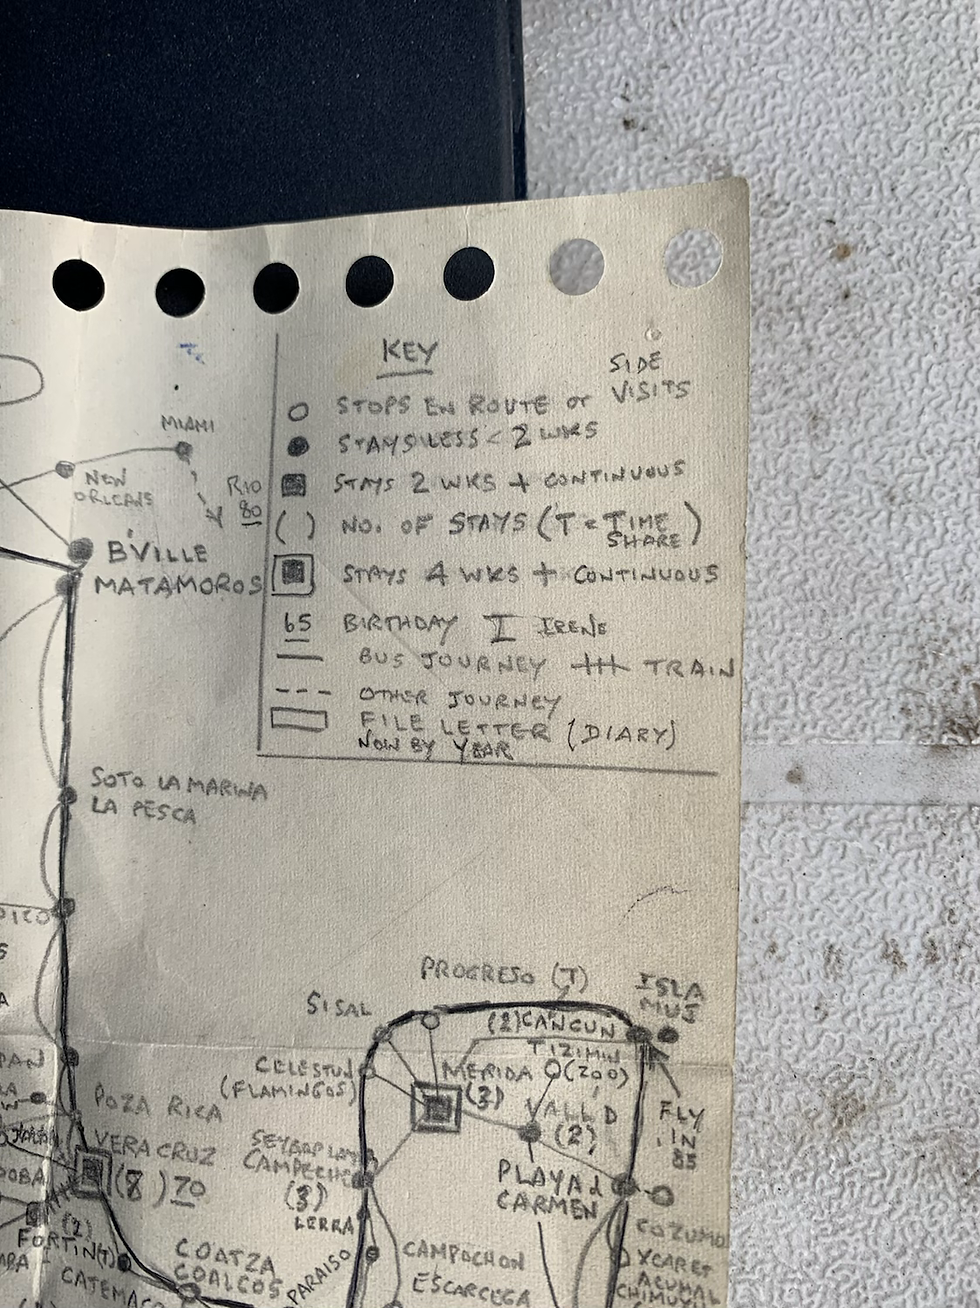 KEY
SIDE
STOPS EN ROUTE or VISITS
STAYS LESS < 2 WKS
STAYS 2 WKS + CONTINUOUS
( ) NO. OF STAYS (T = TIME
SHARE)
STAYS 4 WKS + CONTINUOUS
65 BIRTHDAY I IRENE
BUS JOURNEY TRAIN
OTHER JOURNEY
FILE LETTER (DIARY)
NOW BY YEAR
MIAMI
NEW
ORLEANS
80
B'VILLE
MATAMOROS
SOTO LA MARINA
LA PESCA
PROGRESO (T)
ISLA
MUJ
SISAL
(2) CANCUN
TIZIMIN
CELESTUN
(FLAMINGOS)
MERIDA
(ZOO)
(3)
VALL'D
(2)
FLY
IN
85
POZA RICA
VERA CRUZ
(8) 70
CAMPECHE
(3)
LERRA
PLAYA d
CARMEN
COZUMO
XCARET
ACUMAL
FORTIN (T)
(2)
CATEMACO
COATZA
COALCOS
PARAISO
CAMPOCHON
ESCARCEGA